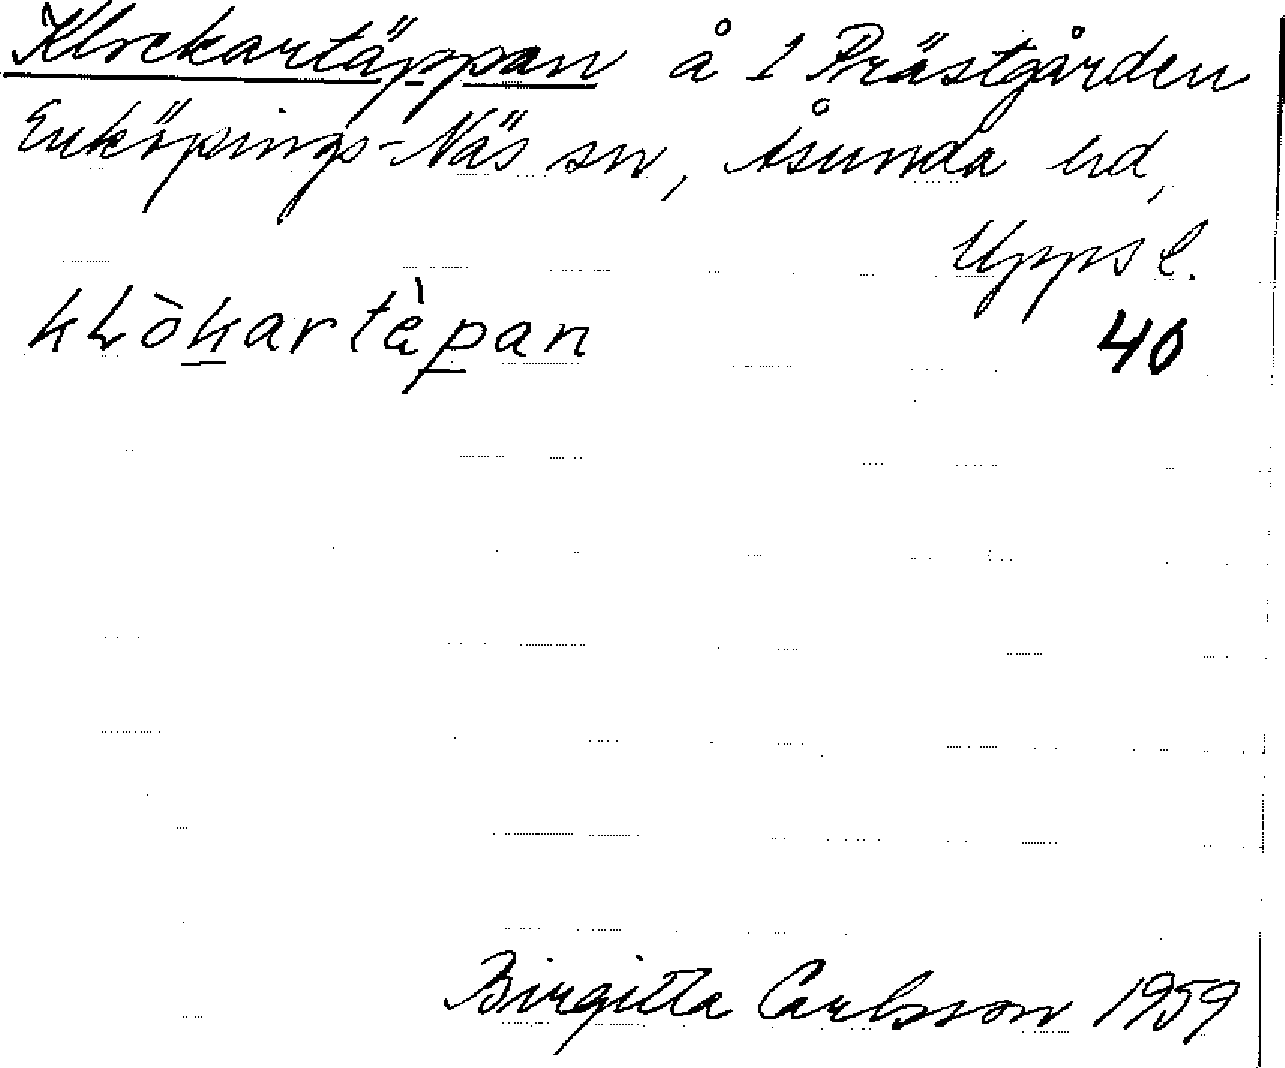 Klockartäppan å 1 Prästgården
Enköpings-Näs sn, Åsunda hd,
Upps l.
kLòkartèpan 40
Birgitta Carlsson 1959